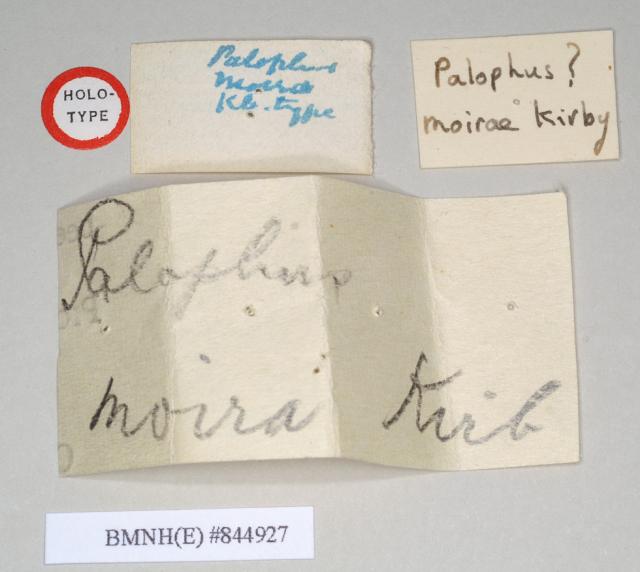 HOLO-
TYPE
Palophus
moira
Kb. type
Palophus?
moirae Kirby
Palophus
moira Kirb
BMNH(E) #844927